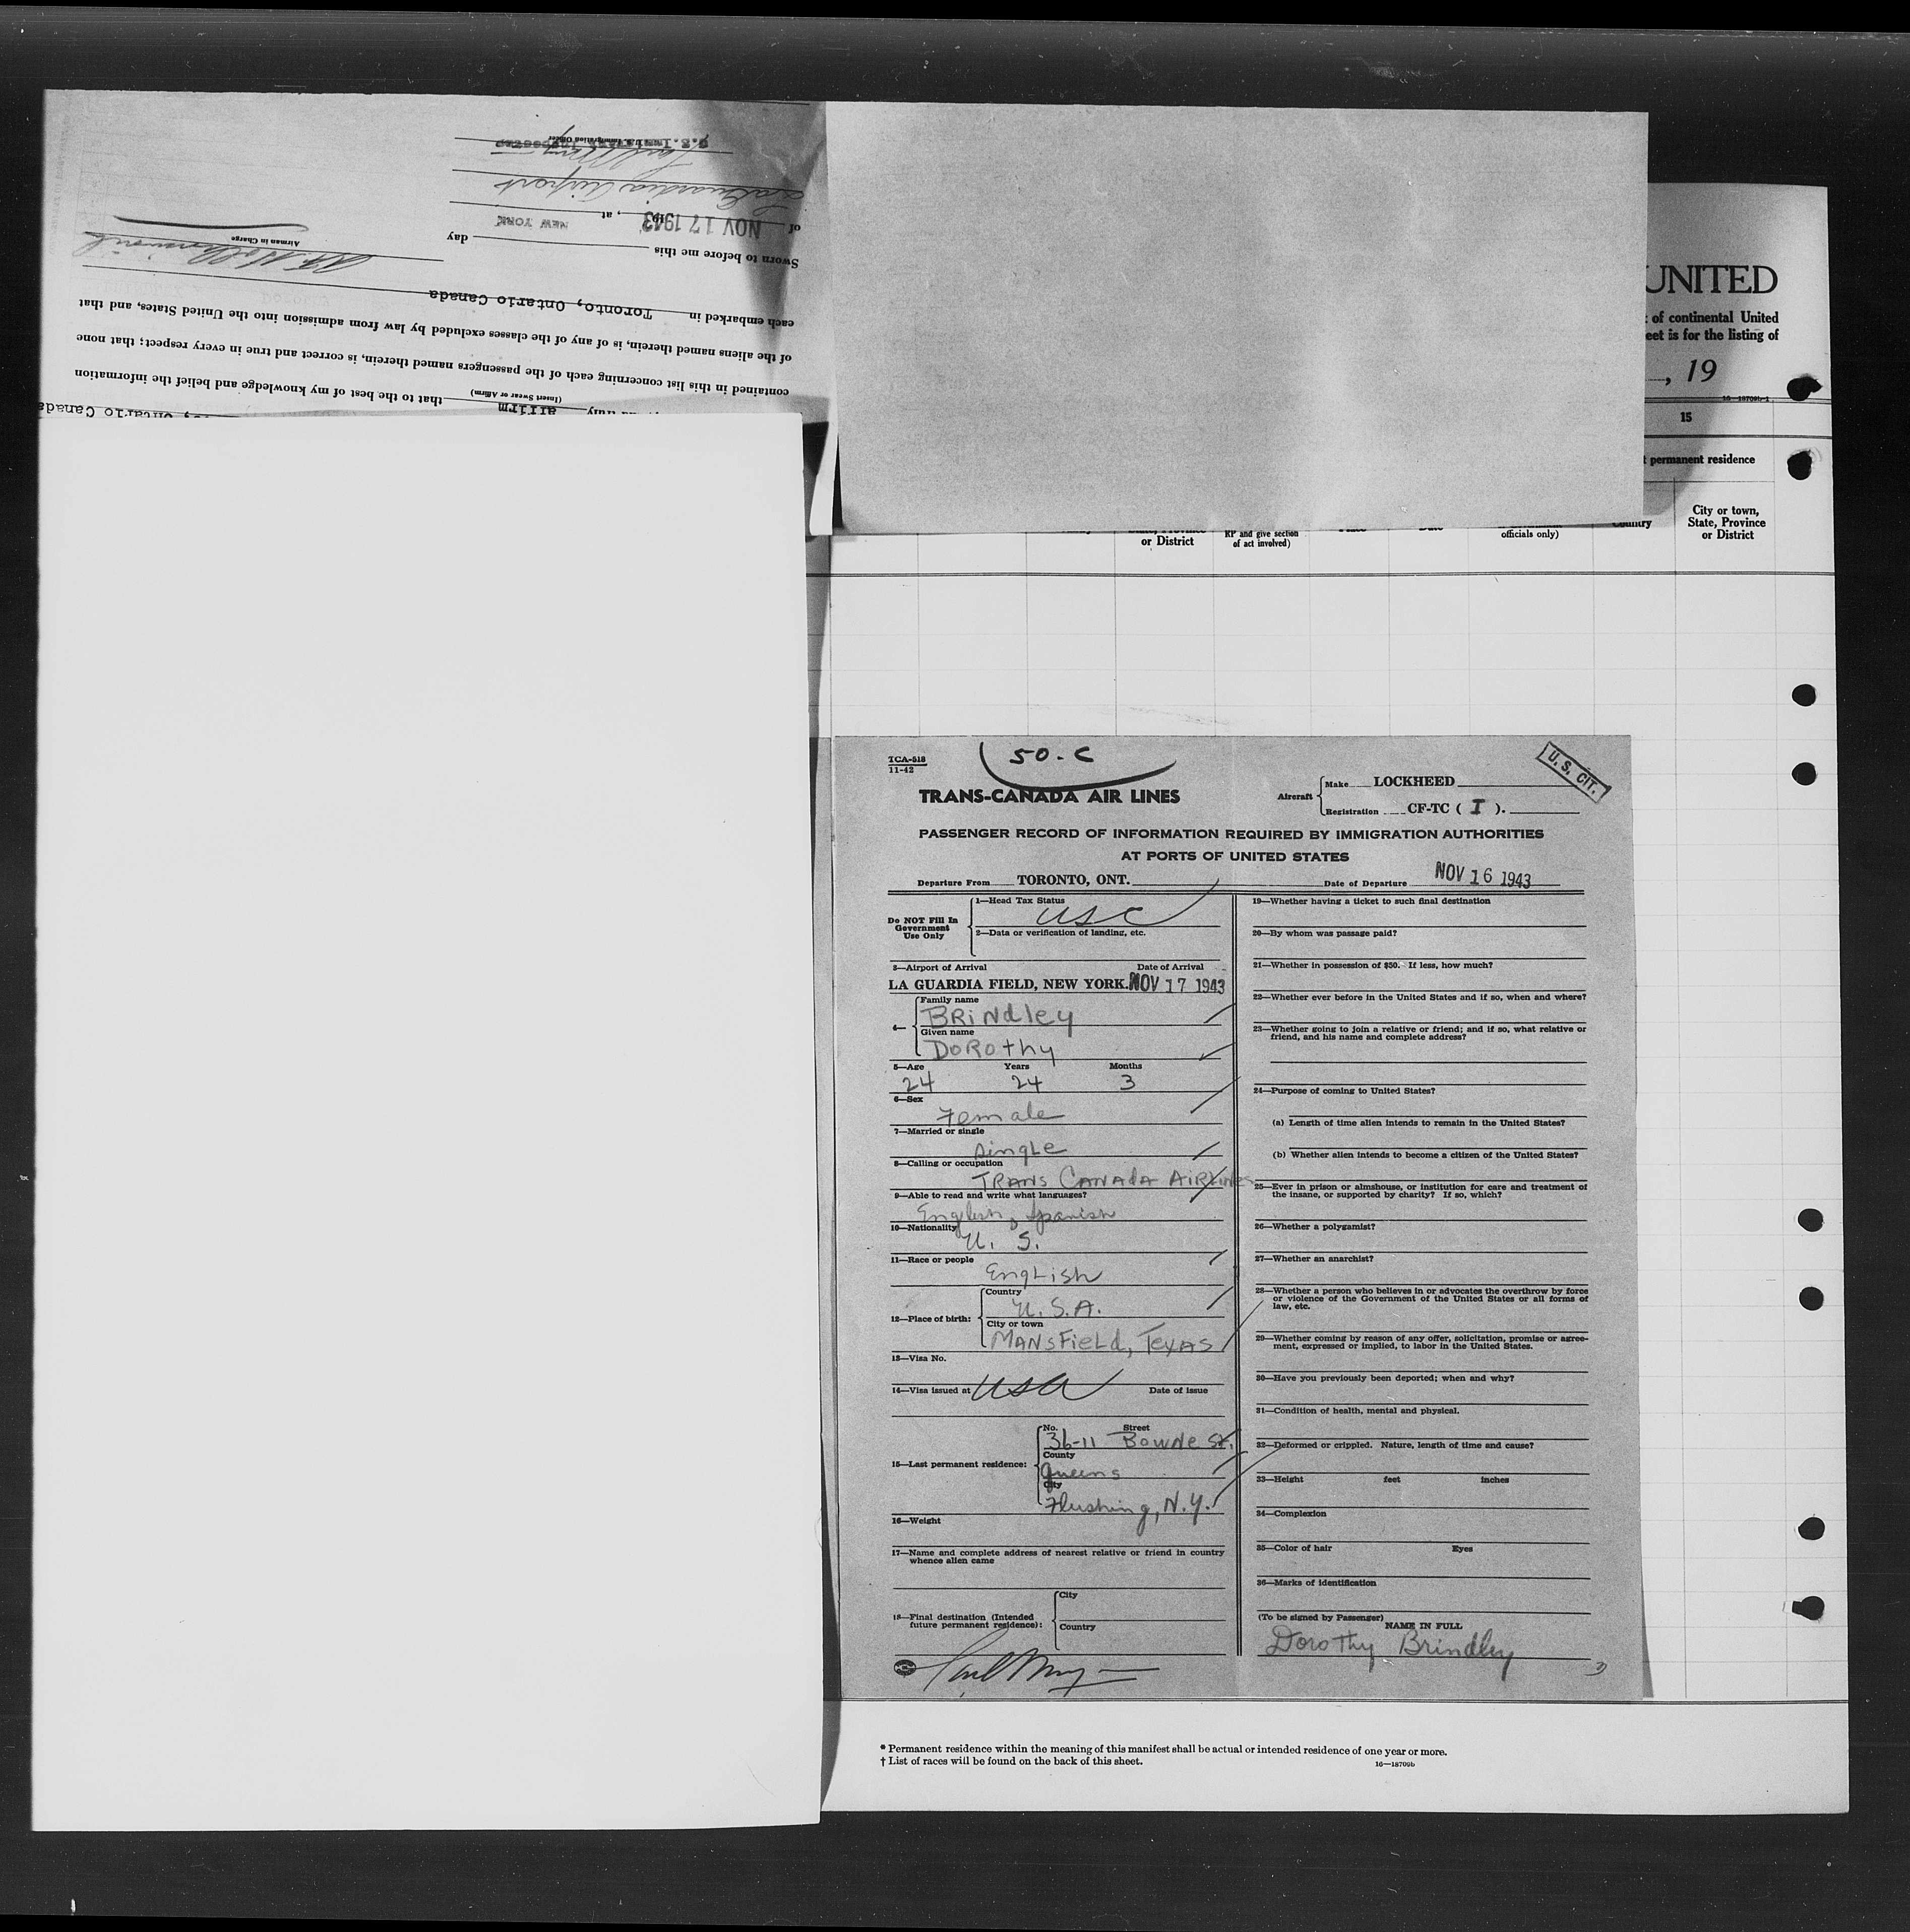 U.S. Immigration Officer
LaGuardia Airport
of NOV 17 1943, at NEW YORK
Sworn to before me this day
Airman in Charge
each embarked in Toronto, Ontario Canada
of the aliens named therein, is of any of the classes excluded by law from admission into the United States, and that
contained in this list concerning each of the passengers named therein, is correct and true in every respect; that none
(Insert Swear or Affirm)
affirm that to the best of my knowledge and belief the information
Ontario Canada
UNITED
of continental United
eet is for the listing of
, 19
16—18709b-1
15
permanent residence
or District
RP and give section
of act involved)
officials only)
Country
City or town,
State, Province
or District
TCA-518
11-42
50-C
U. S. CIT.
TRANS-CANADA AIR LINES
Aircraft
Make LOCKHEED
Registration CF-TC ( I ).
PASSENGER RECORD OF INFORMATION REQUIRED BY IMMIGRATION AUTHORITIES
AT PORTS OF UNITED STATES
Departure From TORONTO, ONT. Date of Departure NOV 16 1943
Do NOT Fill In
Government
Use Only
1—Head Tax Status
USC
2—Data or verification of landing, etc.
3—Airport of Arrival Date of Arrival
LA GUARDIA FIELD, NEW YORK. NOV 17 1943
4—
Family name
BRiNdley
Given name
DoRothy
5—Age Years Months
24 24 3
6—Sex
Female
7—Married or single
single
8—Calling or occupation
TRANS CANADA AiRLines
9—Able to read and write what languages?
English, Spanish
10—Nationality
U. S.
11—Race or people
English
12—Place of birth:
Country
U.S.A.
City or town
MANSFieLd, TexAS
13—Visa No.
14—Visa issued at USA Date of issue
15—Last permanent residence:
No. Street
36-11 Bowne St.
County
Queens
City
Flushing, N.Y.
16—Weight
17—Name and complete address of nearest relative or friend in country
whence alien came
18—Final destination (Intended
future permanent residence):
City
Country
19—Whether having a ticket to such final destination
20—By whom was passage paid?
21—Whether in possession of $50. If less, how much?
22—Whether ever before in the United States and if so, when and where?
23—Whether going to join a relative or friend; and if so, what relative or
friend, and his name and complete address?
24—Purpose of coming to United States?
(a) Length of time alien intends to remain in the United States?
(b) Whether alien intends to become a citizen of the United States?
25—Ever in prison or almshouse, or institution for care and treatment of
the insane, or supported by charity? If so, which?
26—Whether a polygamist?
27—Whether an anarchist?
28—Whether a person who believes in or advocates the overthrow by force
or violence of the Government of the United States or all forms of
law, etc.
29—Whether coming by reason of any offer, solicitation, promise or agree-
ment, expressed or implied, to labor in the United States.
30—Have you previously been deported; when and why?
31—Condition of health, mental and physical.
32—Deformed or crippled. Nature, length of time and cause?
33—Height feet inches
34—Complexion
35—Color of hair Eyes
36—Marks of identification
(To be signed by Passenger)
NAME IN FULL
Dorothy Brindley
* Permanent residence within the meaning of this manifest shall be actual or intended residence of one year or more.
† List of races will be found on the back of this sheet.
16—18709b